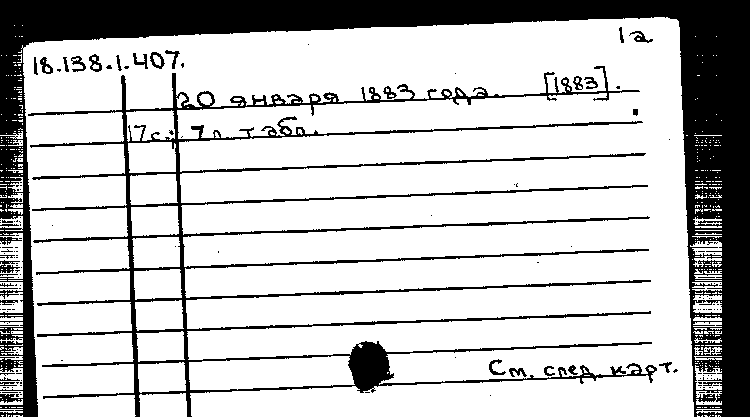 1а
18.138.1.407.
20 января 1883 года. [1883].
17 с.; 7 л. табл.
См. след. карт.